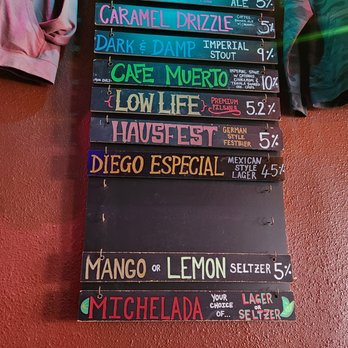 ALE 5%
CARAMEL DRIZZLE COFFEE 5%
DARK & DAMP IMPERIAL STOUT 9%
CAFE MUERTO IMPERIAL STOUT 10%
LOW LIFE PREMIUM PILSNER 5.2%
HAUSFEST GERMAN STYLE FESTBIER 5%
DIEGO ESPECIAL MEXICAN STYLE LAGER 4.5%
MANGO OR LEMON SELTZER 5%
MICHELADA YOUR CHOICE OF... LAGER OR SELTZER